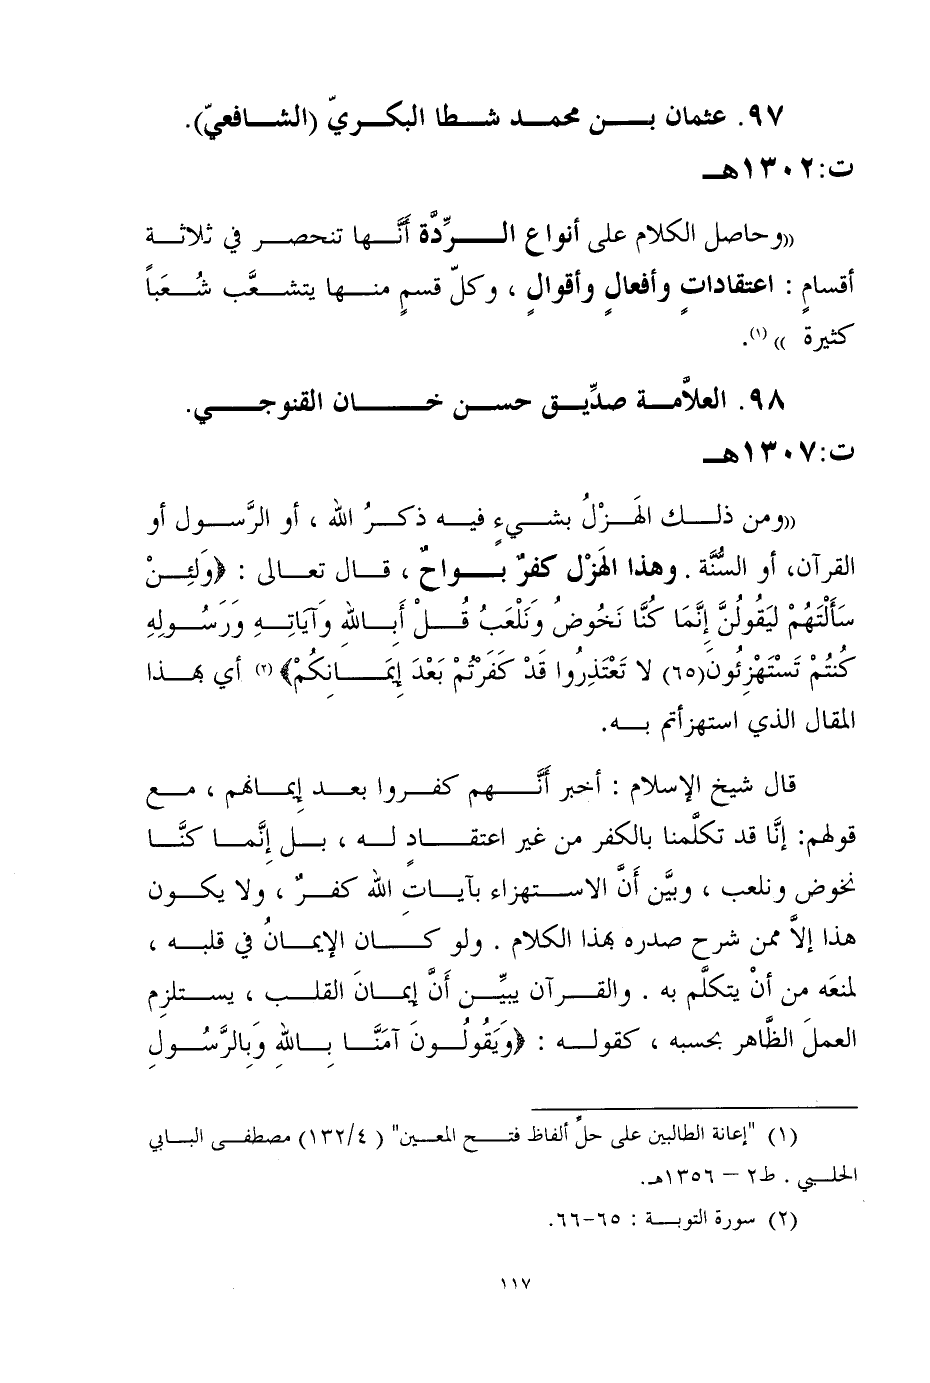 ٩٧. عثمان بن محمد شطا البكريّ (الشافعيّ).
ت:١٣٠٢هـ
((وحاصل الكلام على أنواع الرِّدَّة أنَّها تنحصر في ثلاثة
أقسامٍ : اعتقاداتٍ وأفعالٍ وأقوالٍ ، وكلّ قسمٍ منها يتشعَّب شُعَباً
كثيرة )) (١).
٩٨. العلاَّمة صدِّيق حسن خان القنوجي.
ت:١٣٠٧هـ
((ومن ذلك الهَزْلُ بشيءٍ فيه ذكرُ الله ، أو الرَّسول أو
القرآن، أو السُّنَّة . وهذا الهَزْل كفرٌ بواحٌ ، قال تعالى : ﴿وَلَئِنْ
سَأَلْتَهُمْ لَيَقُولُنَّ إِنَّمَا كُنَّا نَخُوضُ وَنَلْعَبُ قُلْ أَبِاللهِ وَآيَاتِهِ وَرَسُولِهِ
كُنتُمْ تَسْتَهْزِئُونَ(٦٥) لا تَعْتَذِرُوا قَدْ كَفَرْتُمْ بَعْدَ إِيمَانِكُمْ﴾ (٢) أي بهذا
المقال الذي استهزأتم به.
قال شيخ الإسلام : أخبر أنَّهم كفروا بعد إيمانِهم ، مع
قولهم: إنَّا قد تكلَّمنا بالكفر من غير اعتقادٍ له ، بل إنَّما كنَّا
نخوض ونلعب ، وبيَّن أنَّ الاستهزاء بآياتِ الله كفرٌ ، ولا يكون
هذا إلاَّ ممن شرح صدره بهذا الكلام . ولو كان الإيمانُ في قلبه ،
لمنعَه من أنْ يتكلَّم به . والقرآن يبيِّن أنَّ إيمانَ القلب ، يستلزم
العملَ الظَّاهر بحسبه ، كقوله : ﴿وَيَقُولُونَ آمَنَّا بِاللهِ وَبِالرَّسُولِ
(١) "إعانة الطالبين على حلِّ ألفاظ فتح المعين" (٤/ ١٣٢) مصطفى البابي
الحلبي . ط٢ – ١٣٥٦هـ.
(٢) سورة التوبة : ٦٥-٦٦.
١١٧